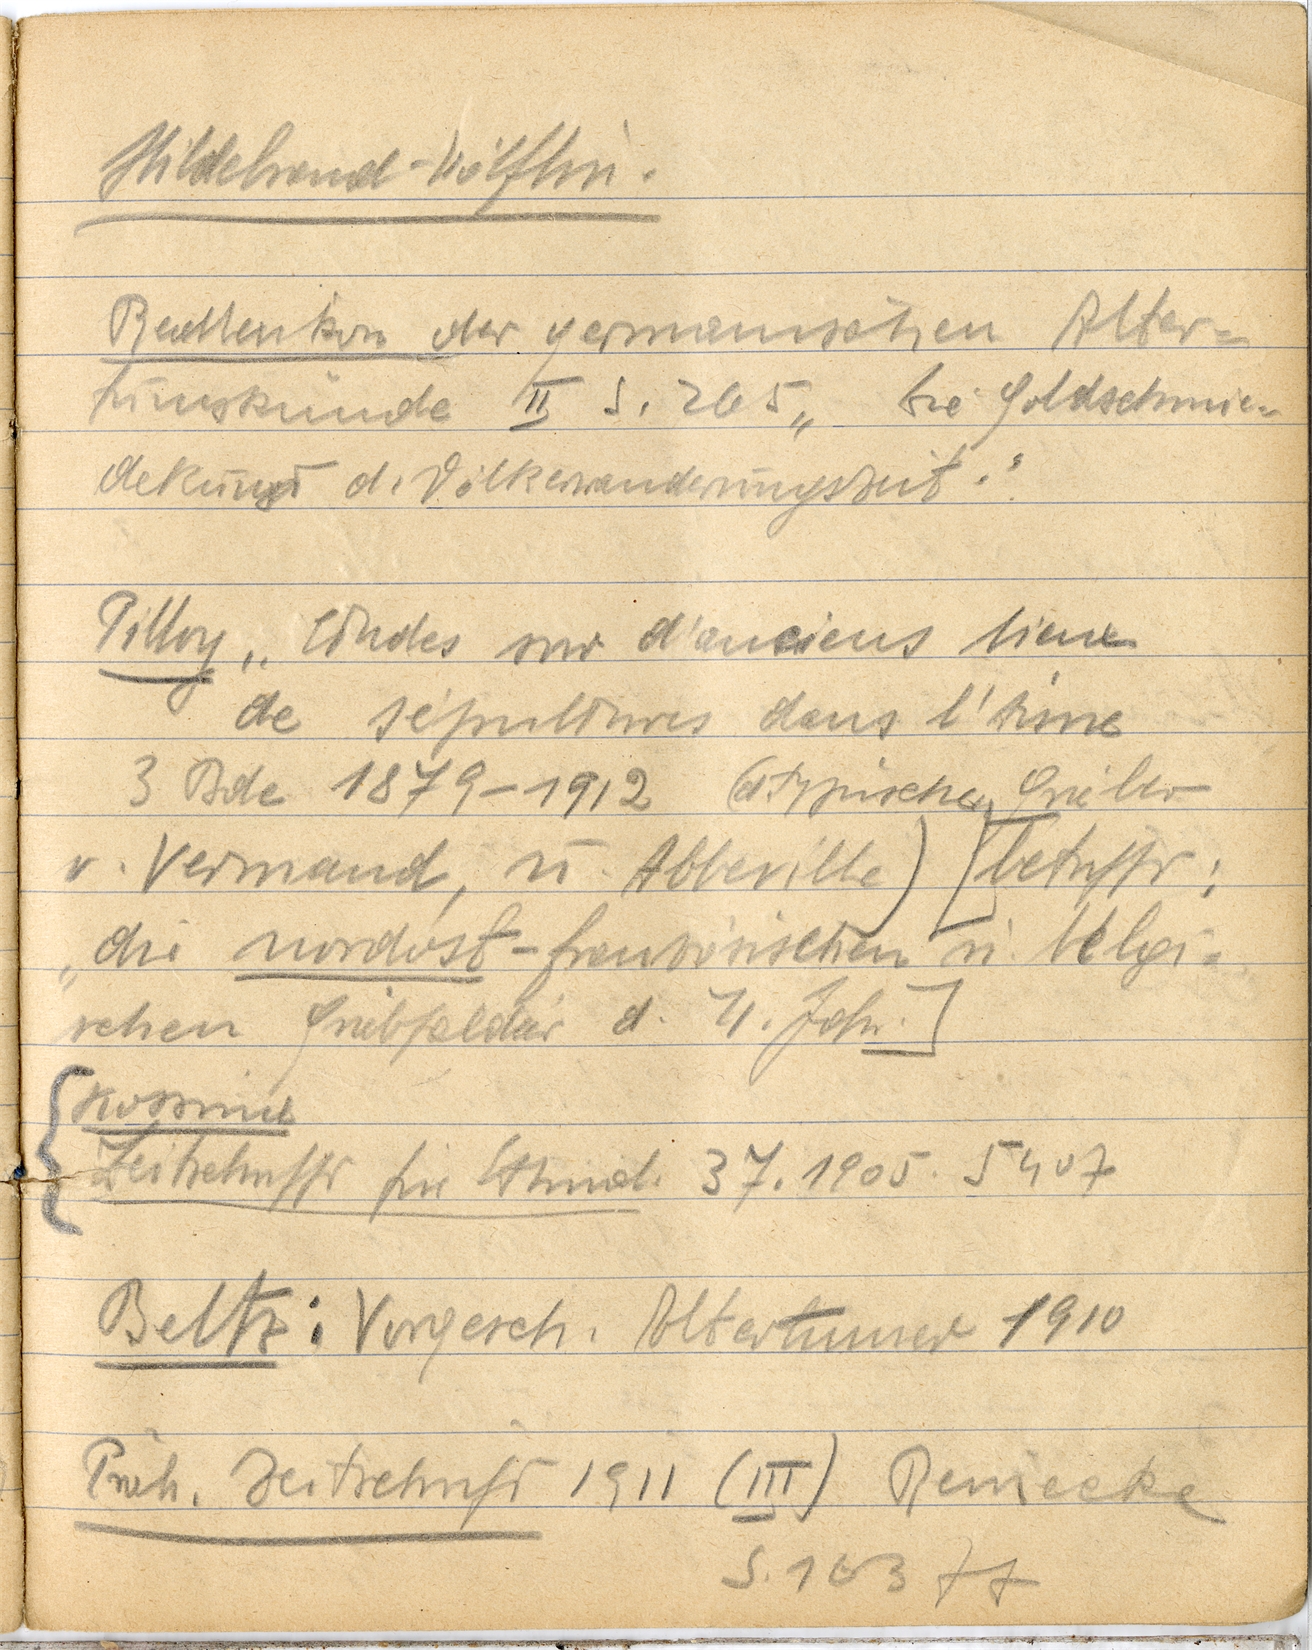 Hildebrand-Wölfflin.
Reallexikon der germanischen Alter=
tumskunde II S. 265 „Die Goldschmie-
dekunst d. Völkerwanderungszeit."
Pilloy „Etudes sur d'anciens lieux
de sépultures dans l'Aisne
3 Bde 1879–1912 (d. typischen Gräber
v. Vermand, u. Abbeville) [betrifft:
„die nordost-französischen u. belgi=
schen Gräbfelder d. 4. Jahr.]
Kossinna
Zeitschrift für Ethnol. 37. 1905. S 407
Beltz: Vorgesch. Altertümer 1910
Präh. Zeitschrift 1911 (III) Reinecke
S. 163 ff